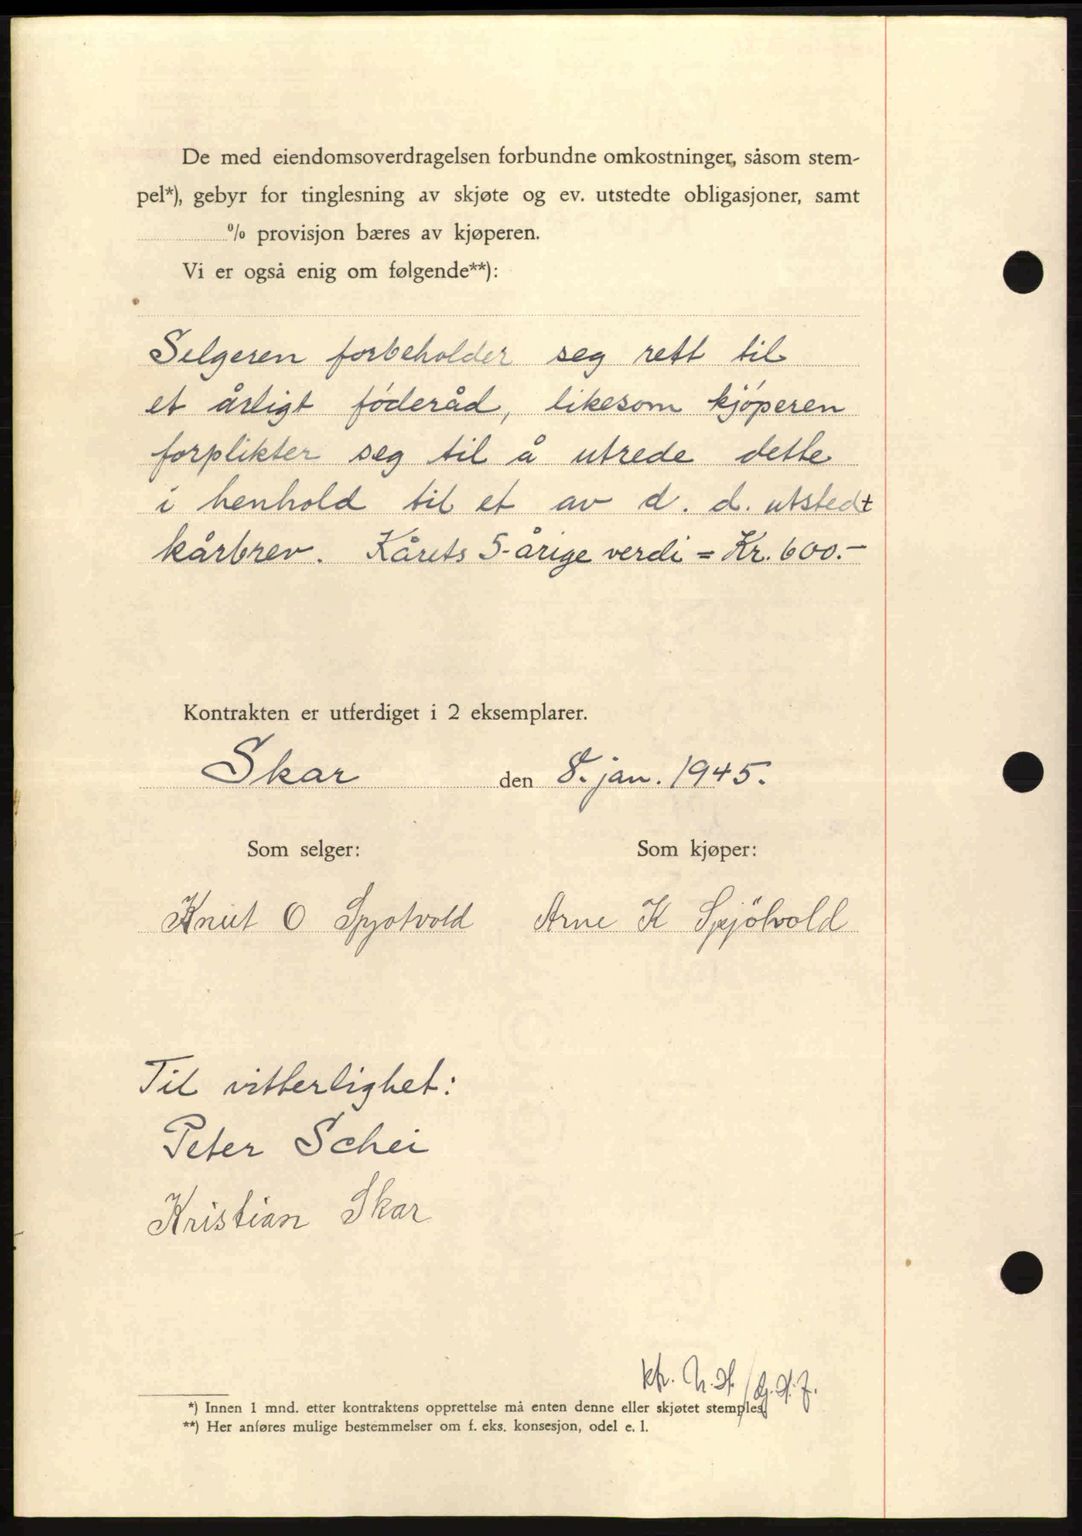 De med eiendomsoverdragelsen forbundne omkostninger, såsom stem-
pel*), gebyr for tinglesning av skjøte og ev. utstedte obligasjoner, samt
............% provisjon bæres av kjøperen.
Vi er også enig om følgende**):
Selgeren forbeholder seg rett til
et årligt föderåd, likesom kjöperen
forplikter seg til å utrede dette
i henhold til et av d. d. utstedt
kårbrev. Kårets 5-årige verdi = Kr. 600.-
Kontrakten er utferdiget i 2 eksemplarer.
Skar den 8. jan. 1945.
Som selger: Som kjøper:
Knut O Spjotvold Arne K Spjötvold
Til vitterlighet:
Peter Schei
Kristian Skar
kfr.
*) Innen 1 mnd. etter kontraktens opprettelse må enten denne eller skjøtet stemples.
**) Her anføres mulige bestemmelser om f. eks. konsesjon, odel e. l.